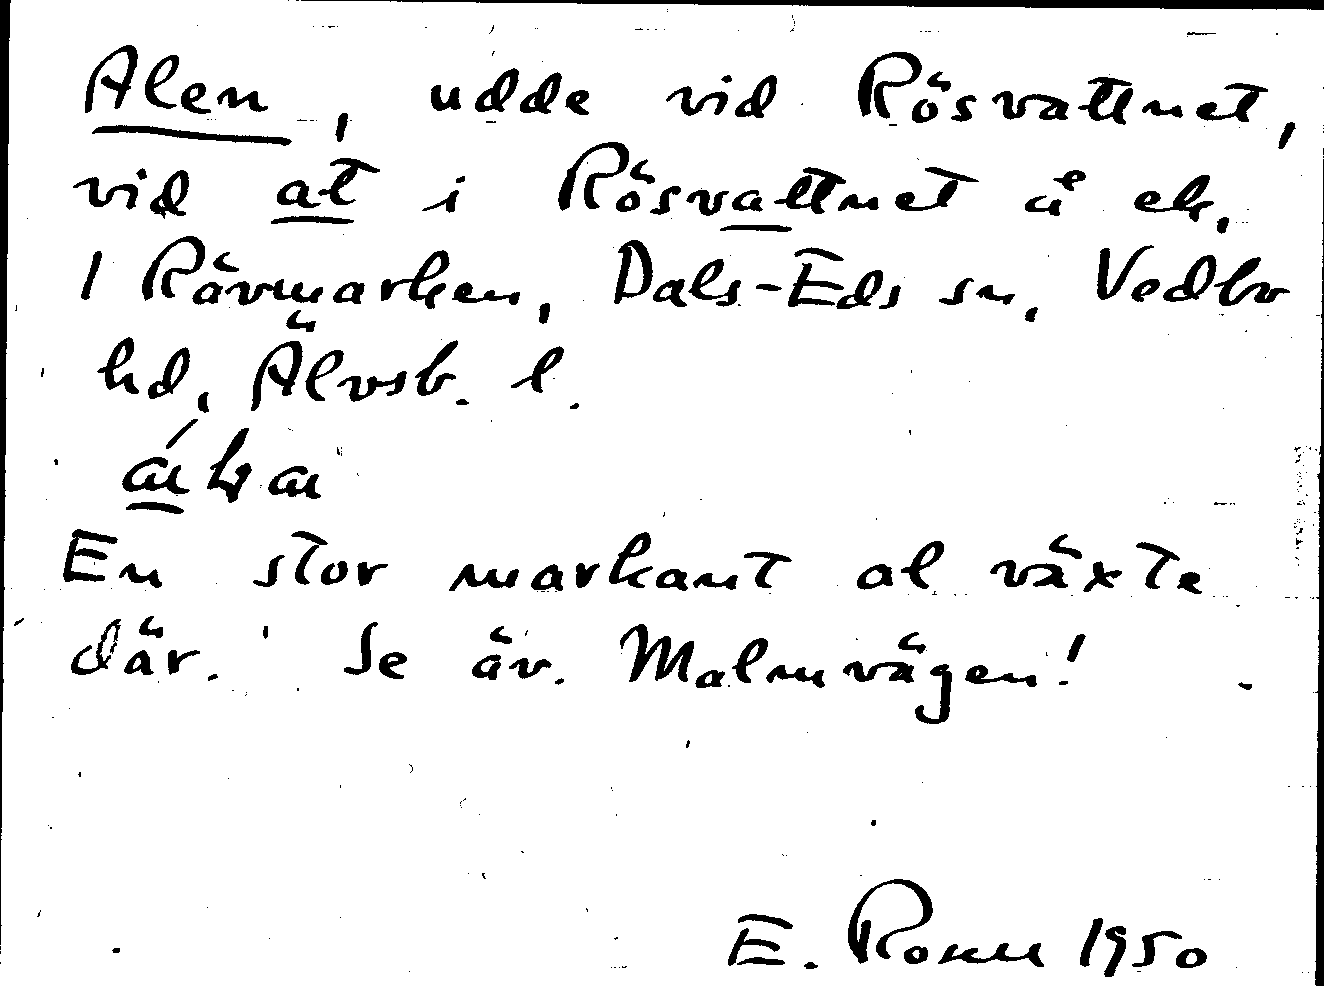 Alen, udde vid Rösvattnet,
vid at i Rösvattnet å ek.
1 Rävmarken, Dals-Eds sn, Vedbo
hd, Älvsb. l.
En stor markant al växte
där. Se äv. Malmvägen!
E. Rosell 1950